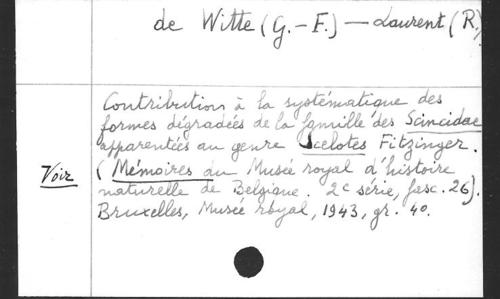 de Witte (G.-F.) — Laurent (R.)
Contribution à la systématique des
formes dégradées de la famille des Scincidae
apparentées au genre Scelotes Fitzinger.
Voir (Mémoires du Musée royal d'histoire
naturelle de Belgique. 2e série, fasc. 26).
Bruxelles, Musée royal, 1943, gr. 4o.